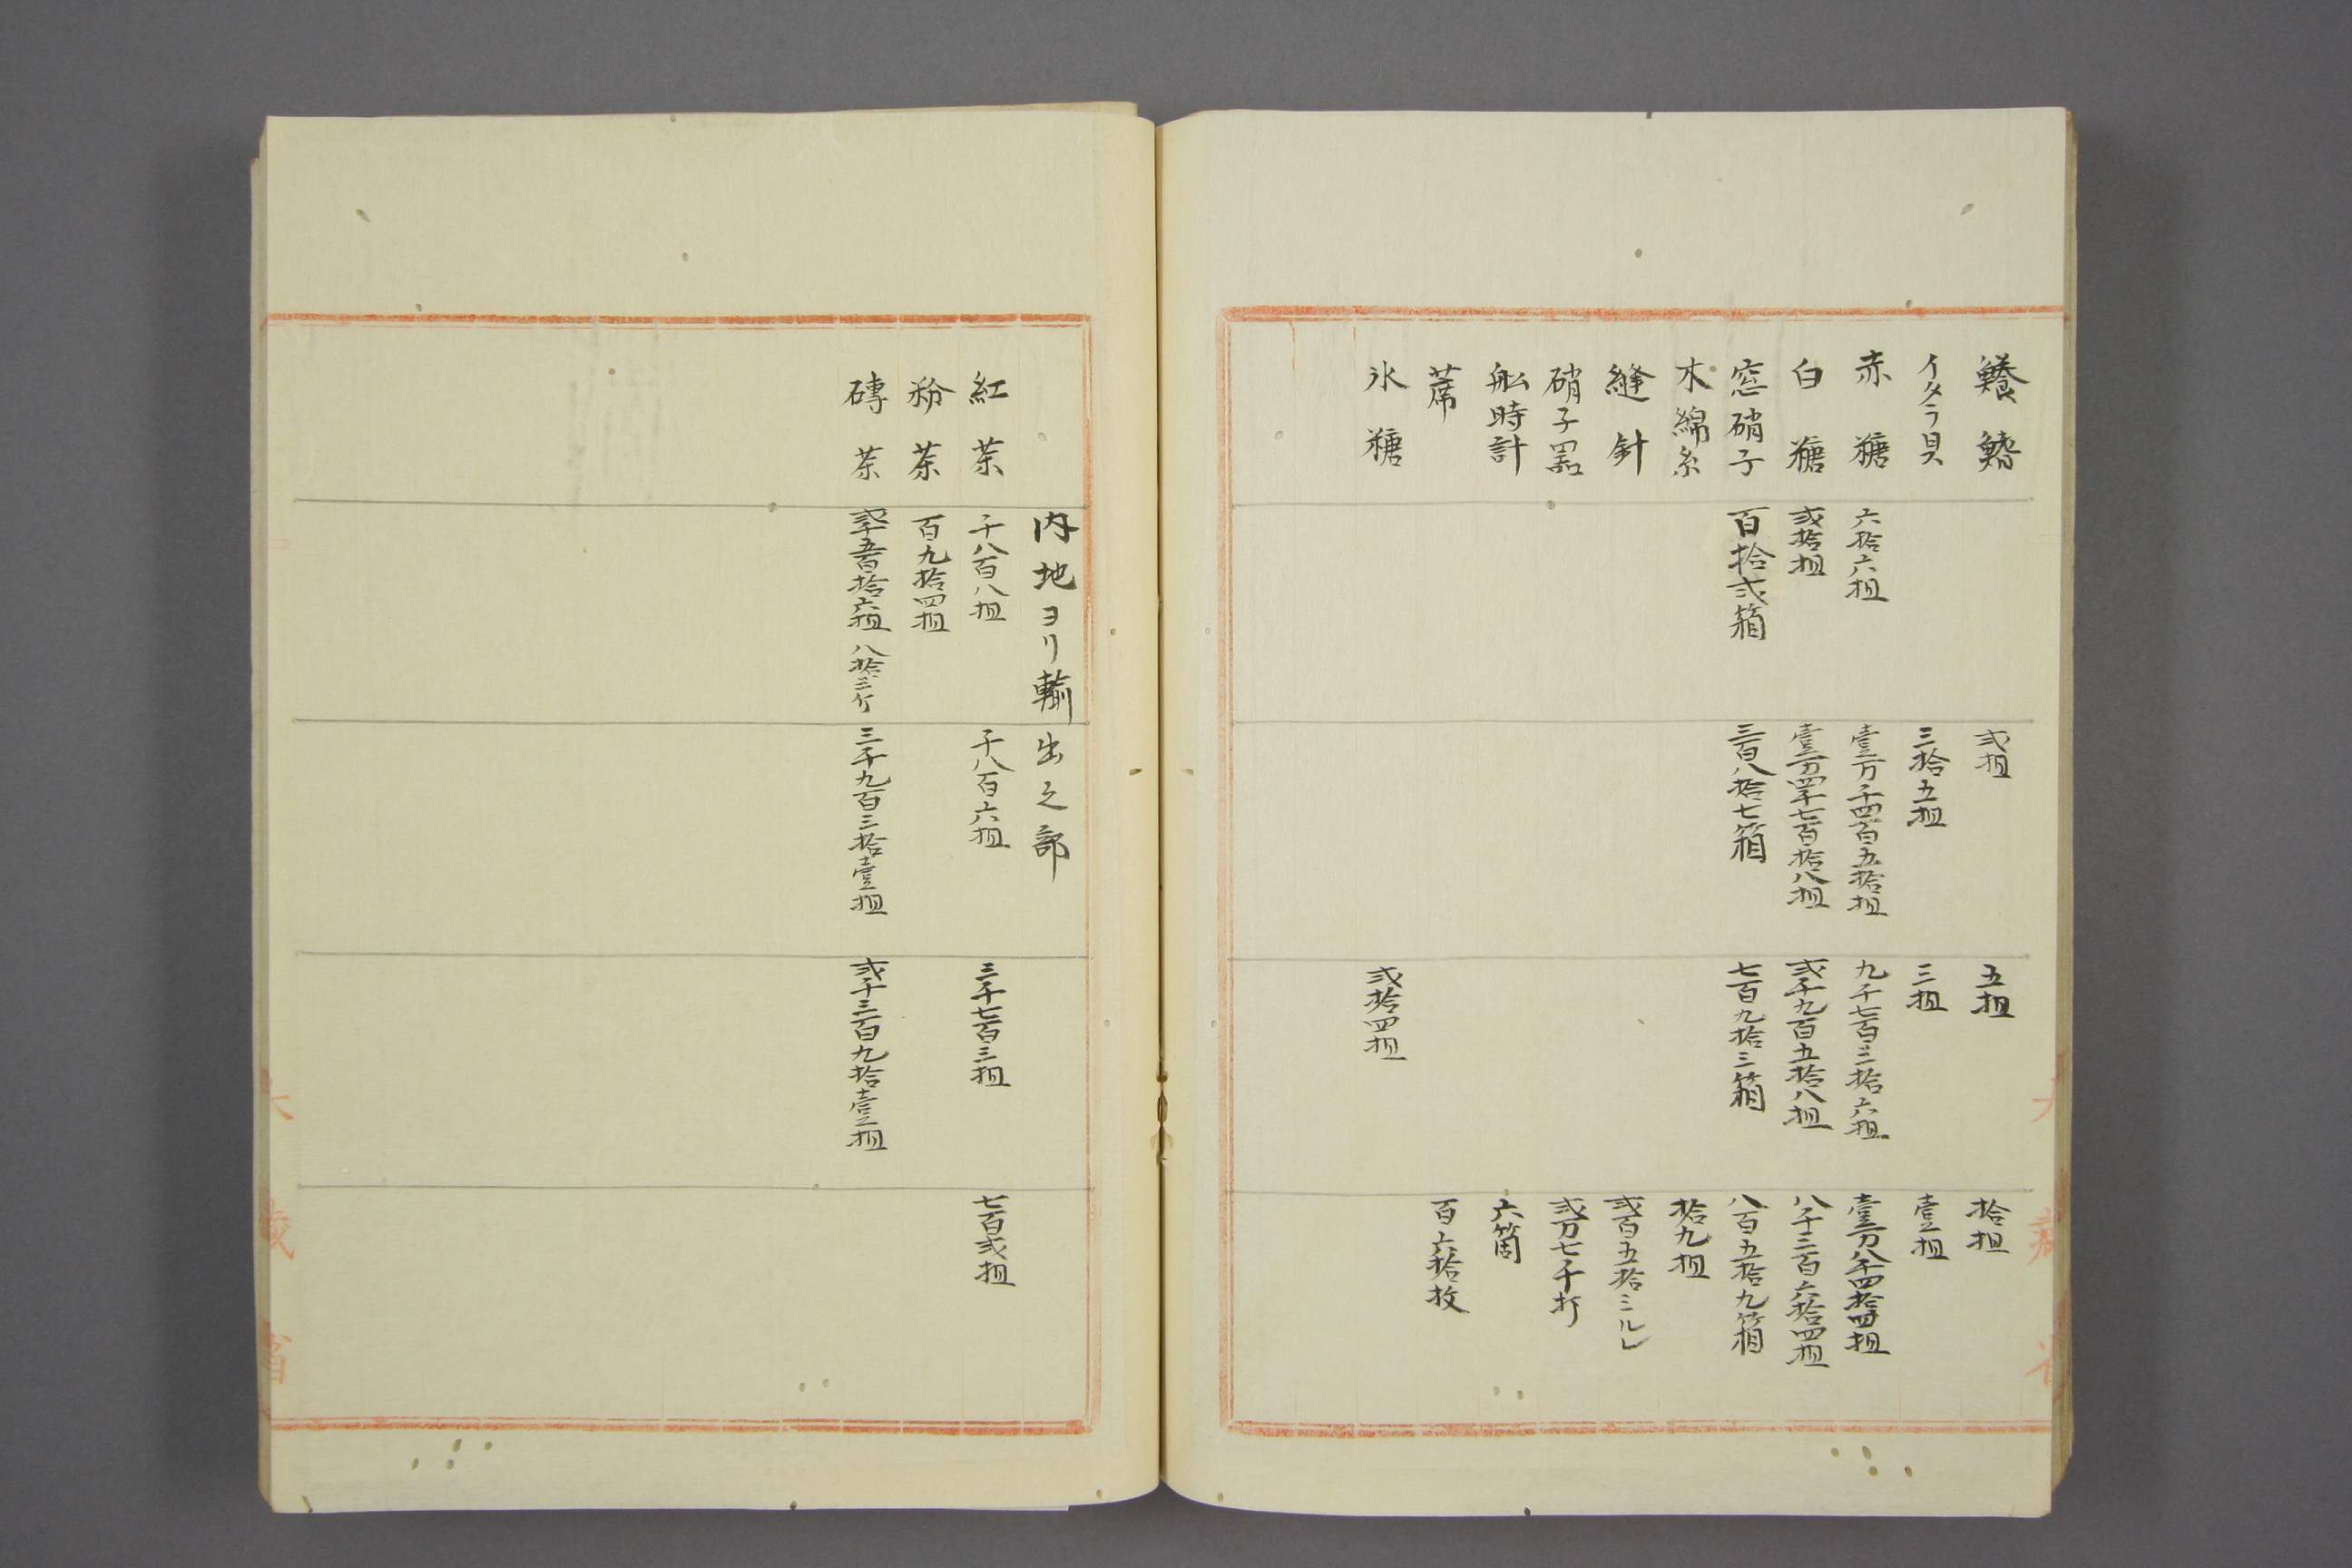 鱶鰭 弐担 五担 拾担
イタラ貝 三拾五担 三担 壹担
赤糖 六拾六担 壹万千四百五拾担 九千七百三拾六担 壹万八千四拾四担
白糖 弐拾担 壹万四千七百拾八担 弐千九百五拾八担 八千三百六拾四担
窓硝子 百拾弐箱 三百八拾七箱 七百九拾三箱 八百五拾九箱
木綿糸 拾九担
縫針 弐百五拾ミルレ
硝子器 弐万七千打
舩時計 六箇
蓆 百六拾枚
氷糖 弐拾四担
内地ヨリ輸出之部
紅茶 千八百八担 千八百六担 三千七百三担 七百弐担
粉茶 百九拾四担
磚茶 弐千五百拾六担 八拾三斤 三千九百三拾壹担 弐千三百九拾壹担